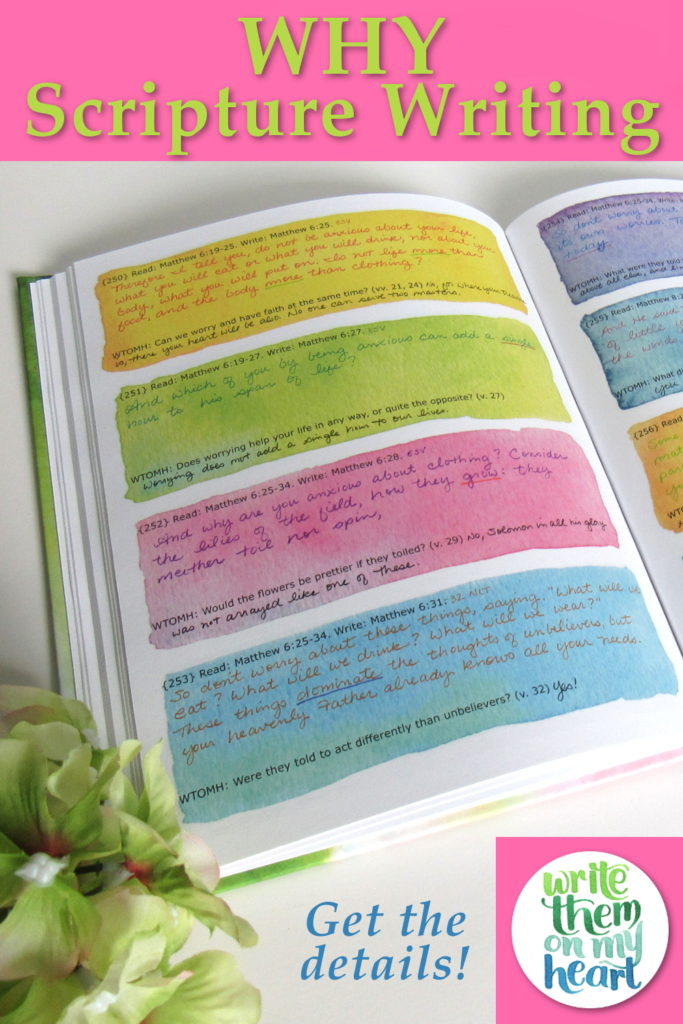 WHY
Scripture Writing
{250} Read: Matthew 6:19-25. Write: Matthew 6:25. ESV
Therefore I tell you, do not be anxious about your life,
what you will eat or what you will drink, nor about your
body, what you will put on. Is not life more than
food, and the body more than clothing?
WTOMH: Can we worry and have faith at the same time? (vv. 21, 24) No, for where your treasure
is, there your heart will be also. No one can serve two masters.
{251} Read: Matthew 6:19-27. Write: Matthew 6:27. ESV
And which of you by being anxious can add a single
hour to his span of life?
WTOMH: Does worrying help your life in any way, or quite the opposite? (v. 27)
Worrying does not add a single hour to our lives.
{252} Read: Matthew 6:25-34. Write: Matthew 6:28. ESV
And why are you anxious about clothing? Consider
the lilies of the field, how they grow: they
neither toil nor spin,
WTOMH: Would the flowers be prettier if they toiled? (v. 29) No, Solomon in all his glory
was not arrayed like one of these.
{253} Read: Matthew 6:25-34. Write: Matthew 6:31. 32 NLT
So don't worry about these things, saying, "What will we
eat? What will we drink? What will we wear?"
These things dominate the thoughts of unbelievers, but
your heavenly Father already knows all your needs.
WTOMH: Were they told to act differently than unbelievers? (v. 32) Yes!
{254} Read: Matthew 6:25-34. Write
So don't worry about
its own worries. To
today.
WTOMH: What were they told
above all else, and li
{255} Read: Matthew 8:2
And He said
of little
the winds
WTOMH: What di
you
{256} Read: Mat
Some
mat
par
WTO
Get the
details!
write
them
on my
heart